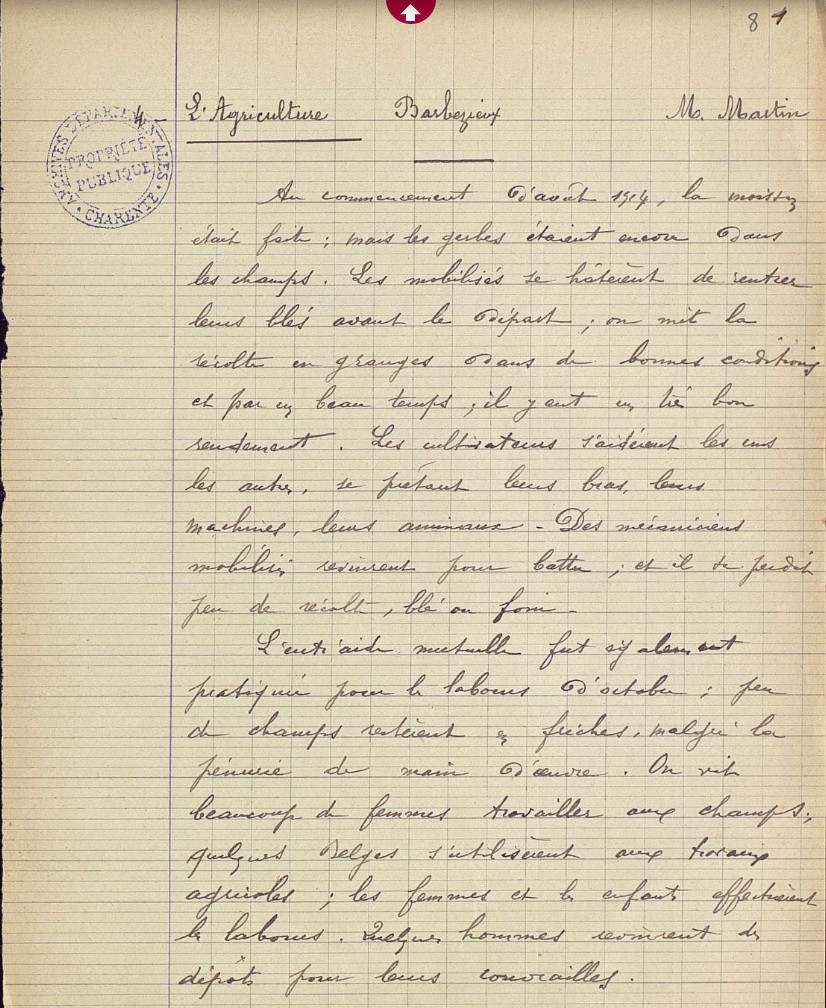 8 1
L'Agriculture Barbezieux M. Martin
4-
ARCHIVES DÉPARTEMENTALES
PROPRIÉTÉ
PUBLIQUE
CHARENTE
Au commencement d'août 1914, la moisson
était faite ; mais les gerbes étaient encore dans
les champs. Les mobilisés se hâtèrent de rentrer
leurs blés avant le départ ; on mit la
récolte en granges dans de bonnes conditions
et par un beau temps ; il y eut un très bon
rendement. Les cultivateurs s'aidèrent les uns
les autres, se prêtant leurs bras, leurs
machines, leurs animaux - Des mécaniciens
mobilisés revinrent pour battre ; et il se perdit
peu de récolte, blé ou foin -
L'entr'aide mutuelle fut également
pratiquée pour les labours d'octobre ; peu
de champs restèrent en friches, malgré la
pénurie de main d'œuvre. On vit
beaucoup de femmes travailler aux champs ;
quelques Belges s'utilisèrent aux travaux
agricoles ; les femmes et les enfants effectuèrent
les labours. Quelques hommes revinrent des
dépôts pour leurs couvrailles.